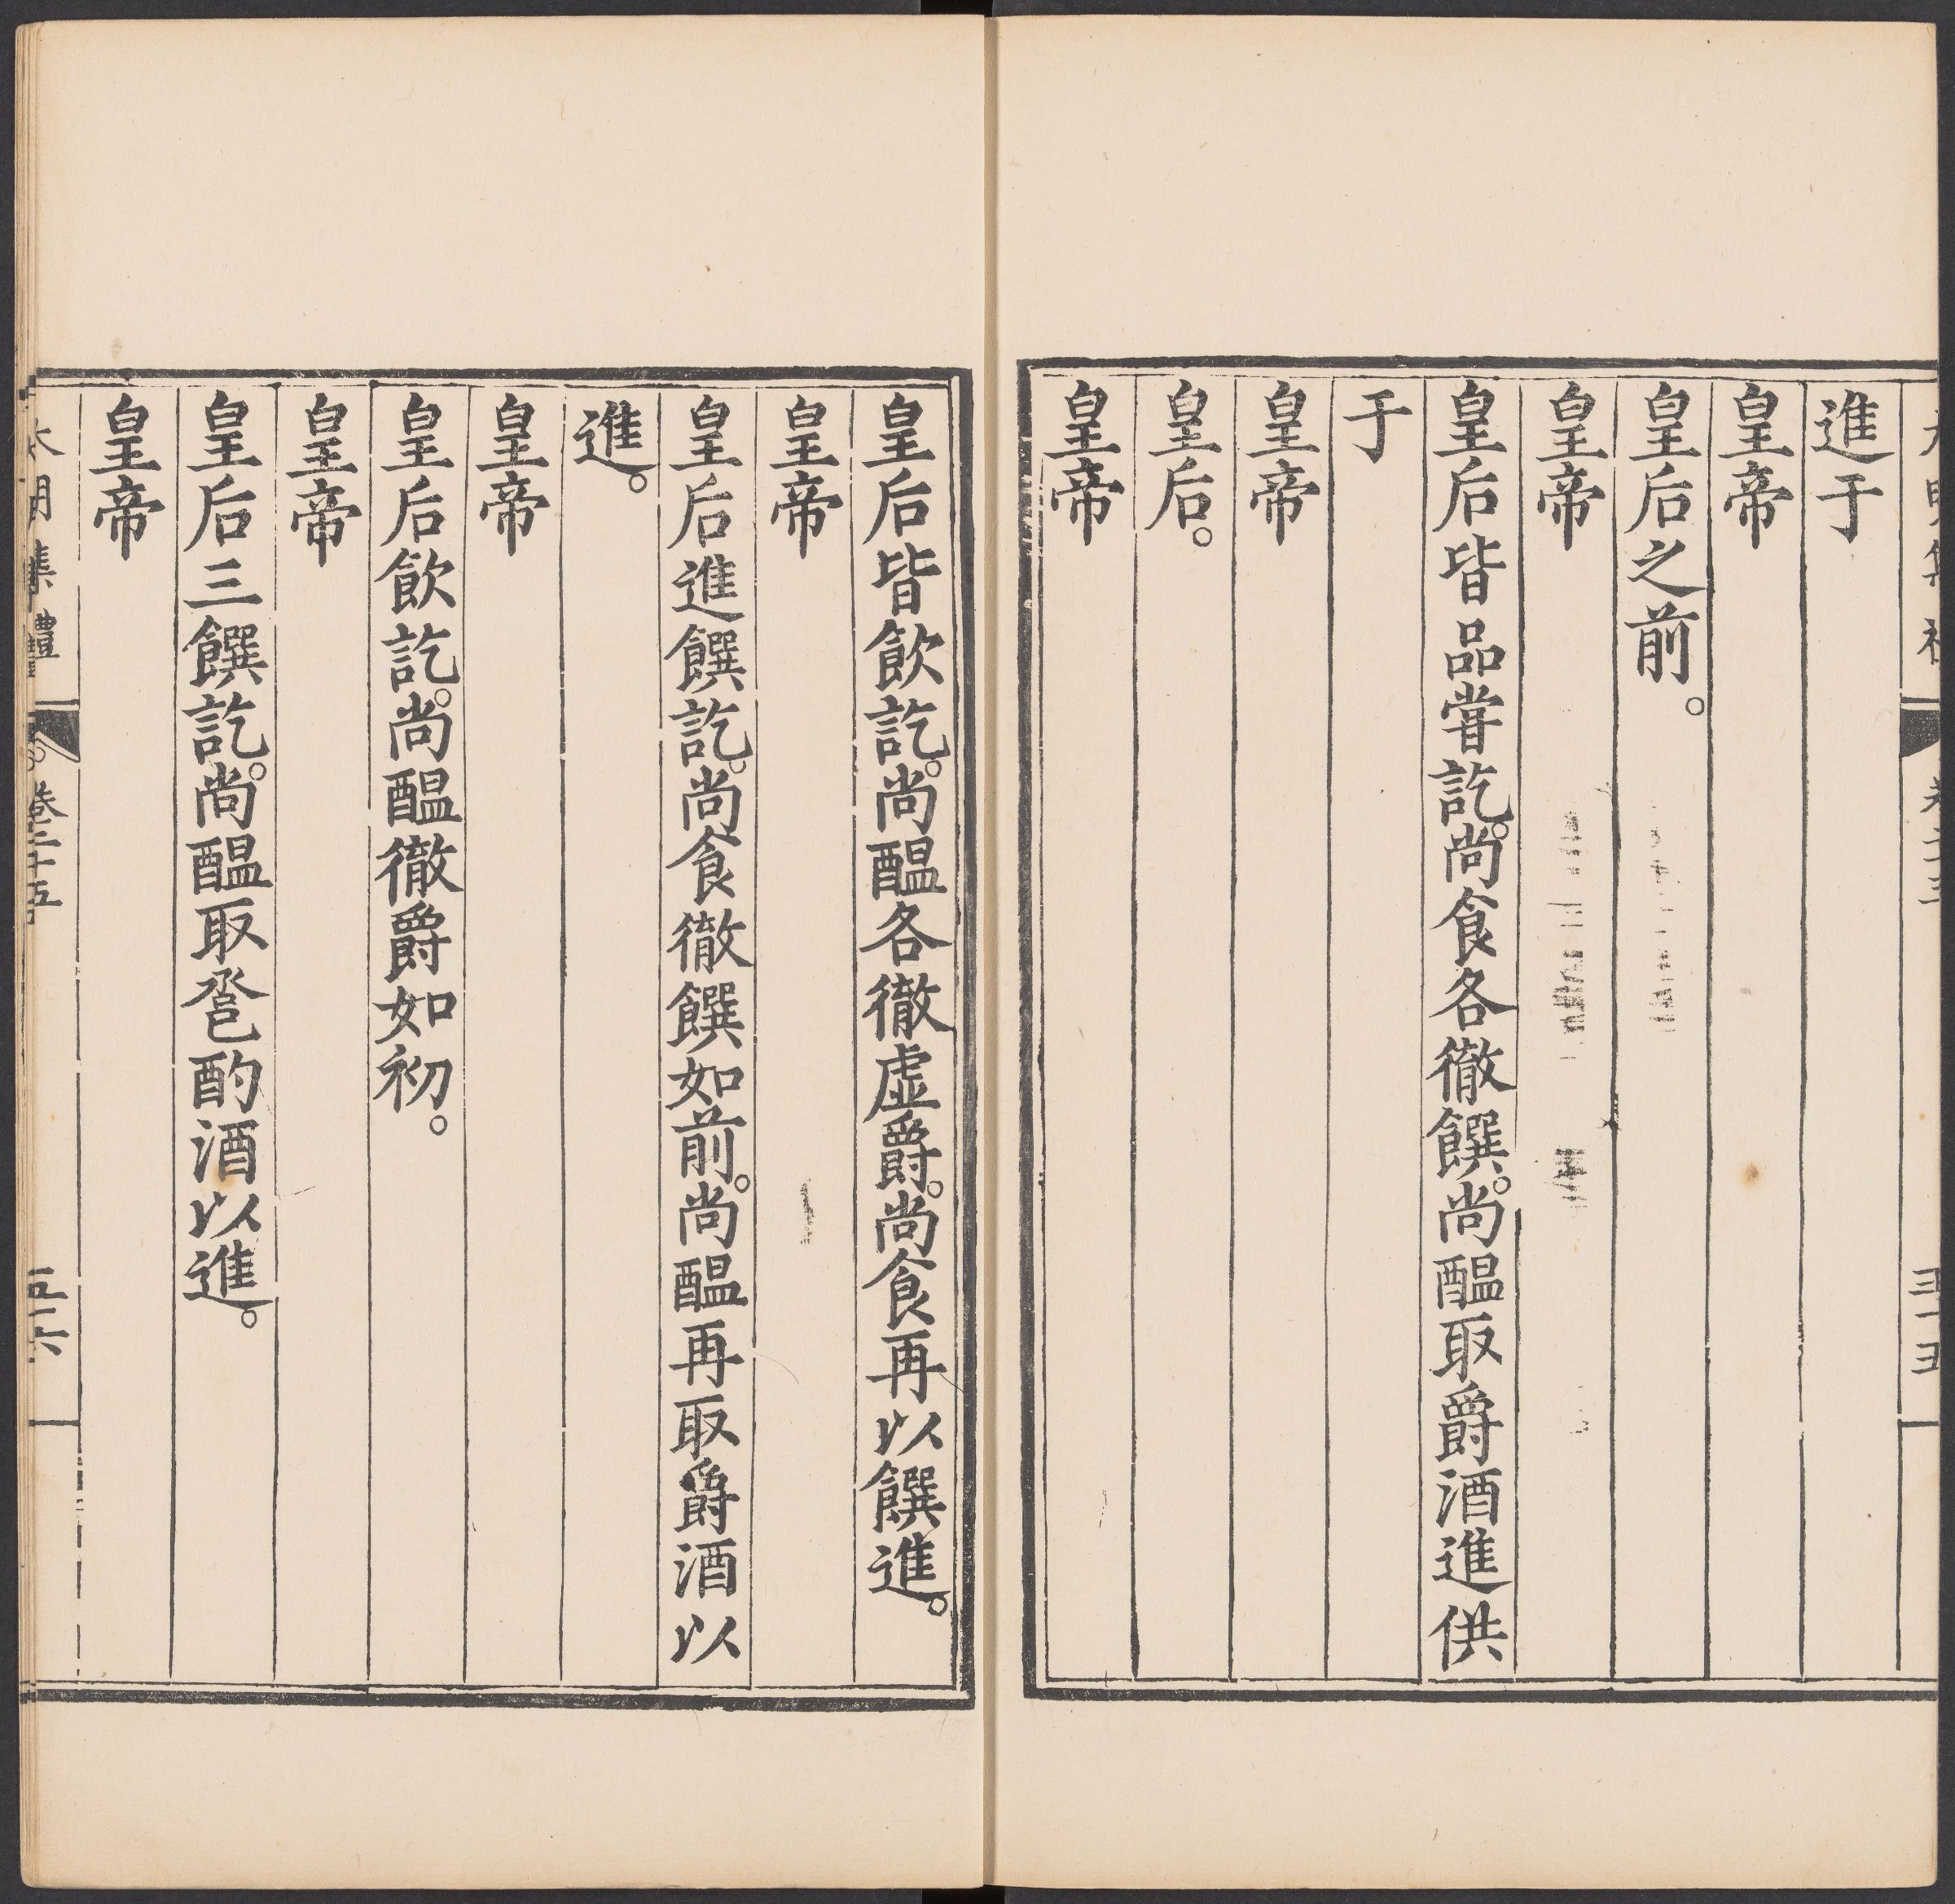 進于
皇帝
皇后之前。
皇帝
皇后皆品嘗訖。尚食各徹饌。尚醖取爵酒進供
于
皇帝
皇后。
皇帝
皇后皆飲訖。尚醖各徹虚爵。尚食再以饌進。
皇帝
皇后進饌訖。尚食徹饌如前。尚醖再取爵酒以
進。
皇帝
皇后飲訖。尚醖徹爵如初。
皇帝
皇后三饌訖。尚醖取卺酌酒以進。
皇帝
大明集禮 卷二十五